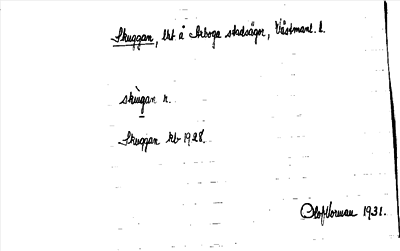 Skuggan, lht å Arboga stadsägor, Västmanl. l.
skùgan n.
Skuggan kb 1928.
Olof Norman 1931.